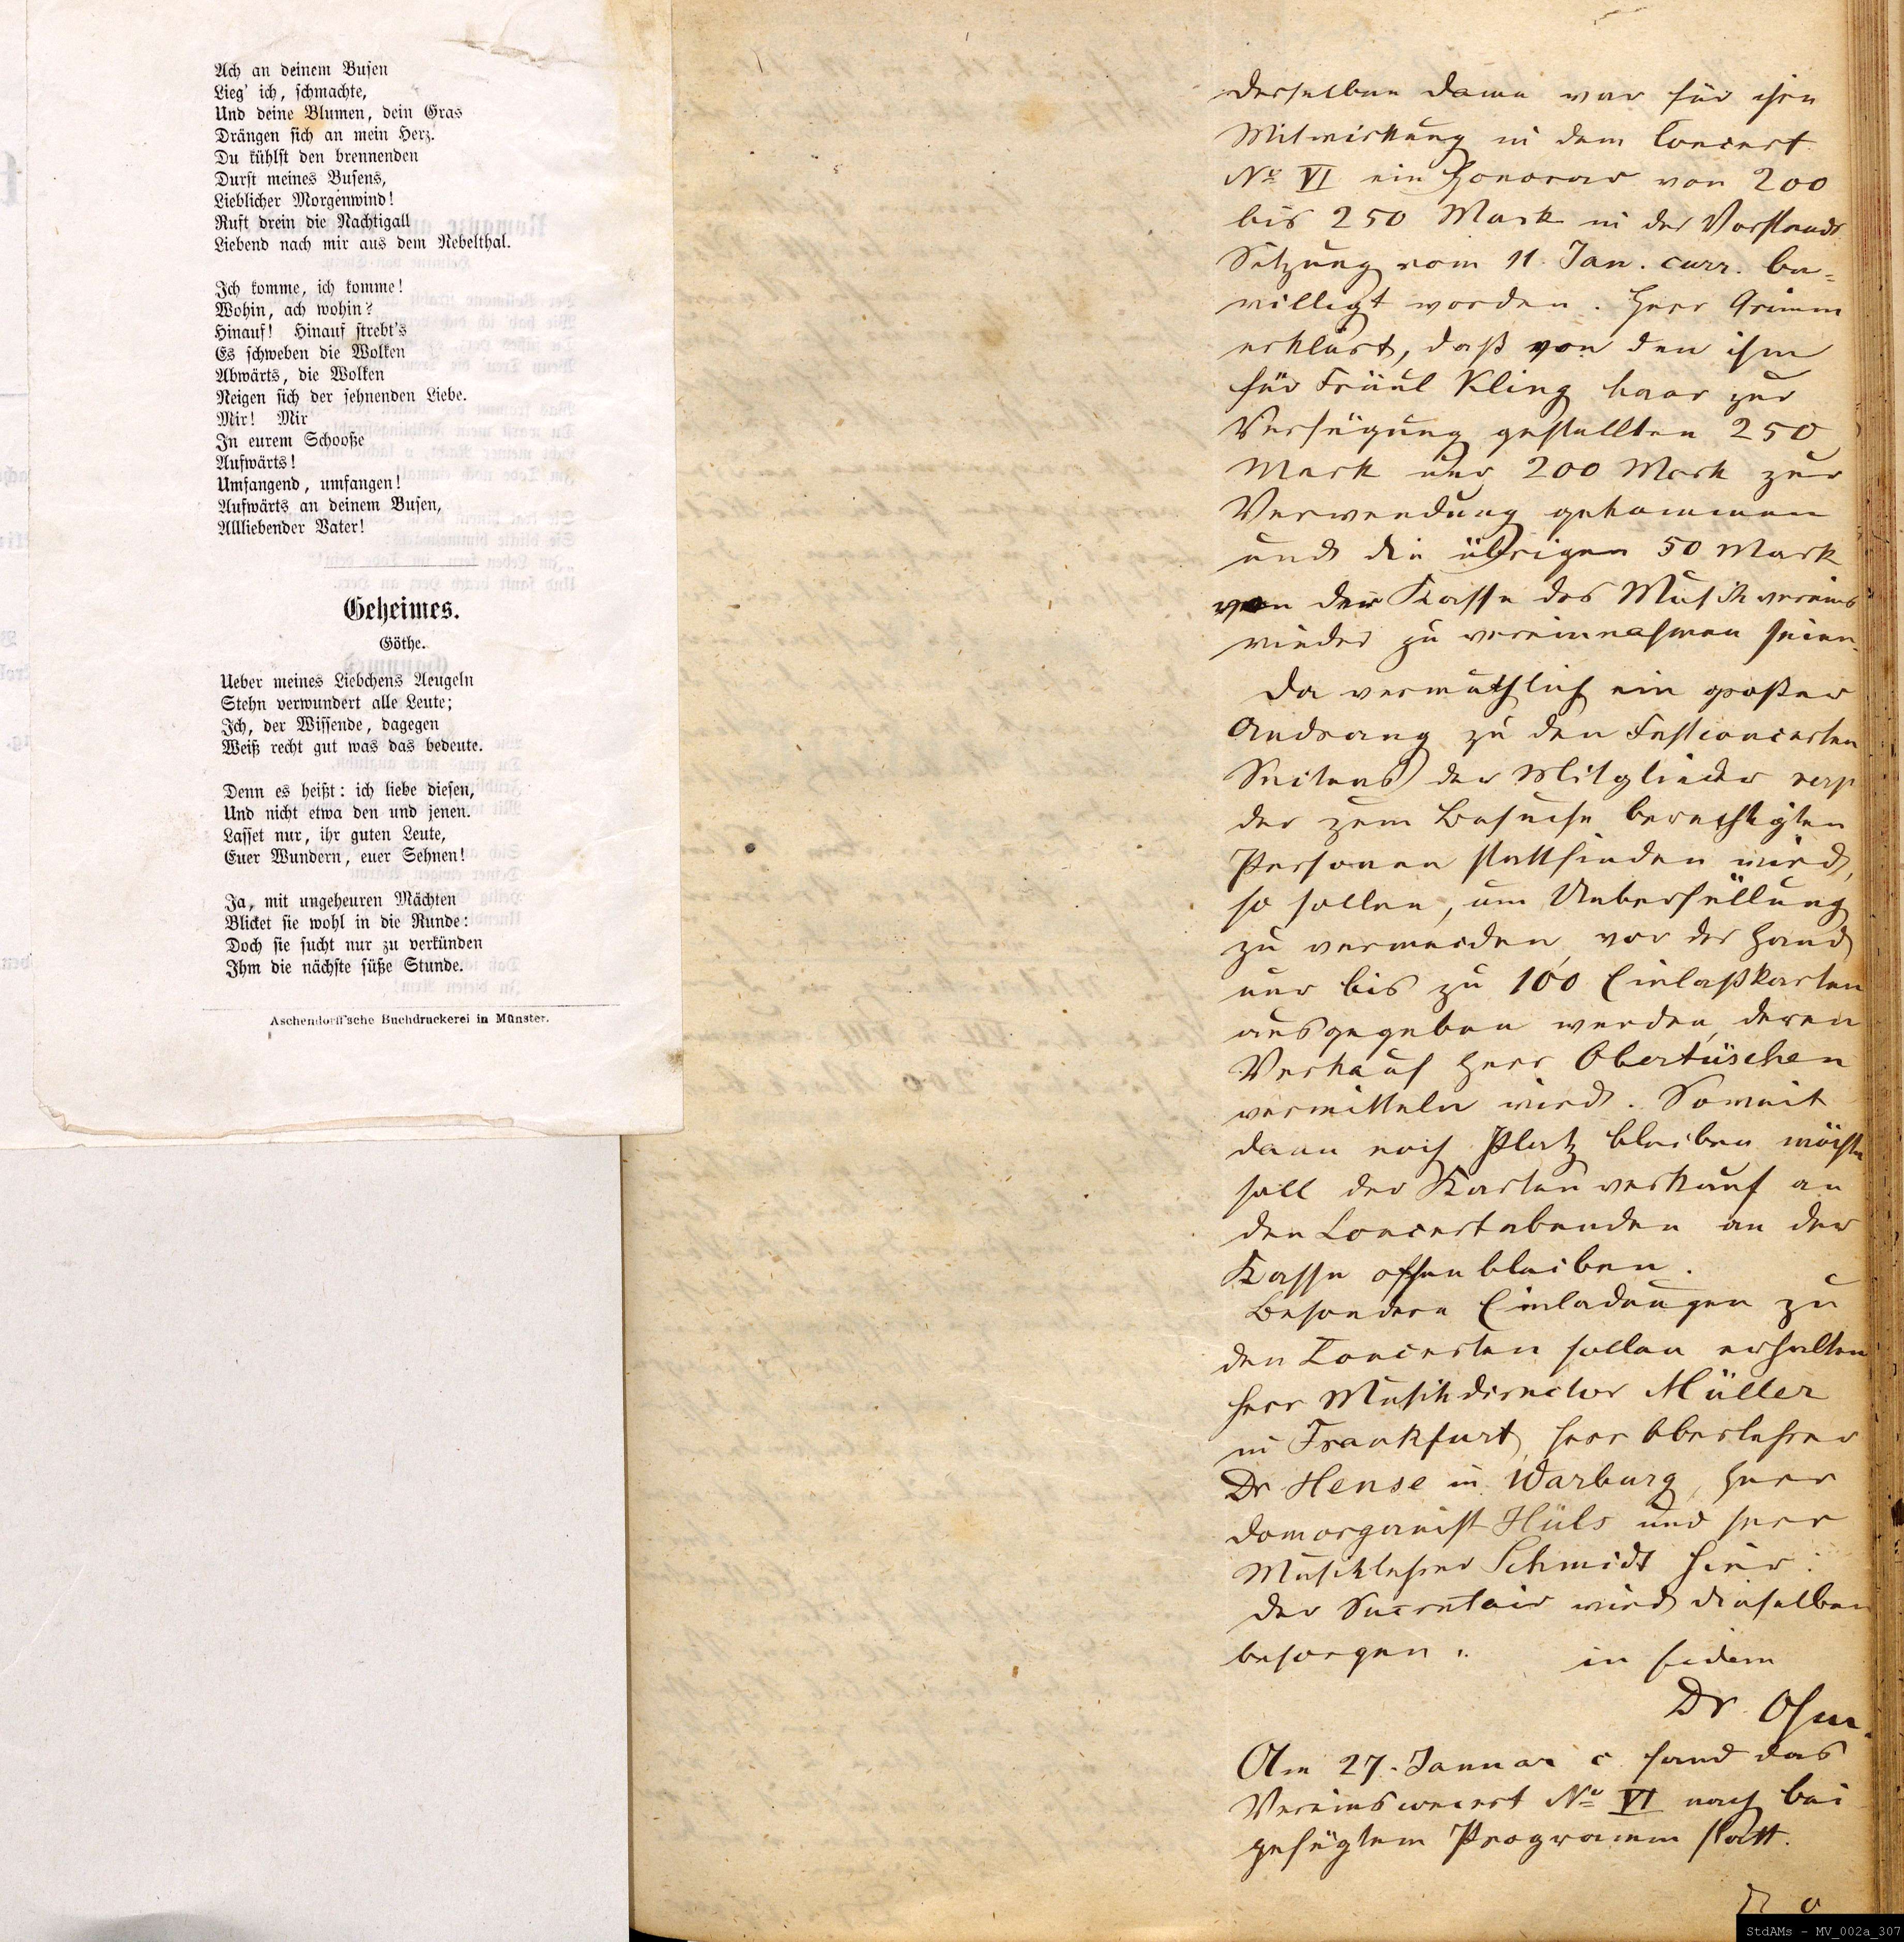 Ach an deinem Busen
Lieg' ich, schmachte,
Und deine Blumen, dein Gras
Drängen sich an mein Herz.
Du kühlst den brennenden
Durst meines Busens,
Lieblicher Morgenwind!
Ruft drein die Nachtigall
Liebend nach mir aus dem Nebelthal.
Ich komme, ich komme!
Wohin, ach wohin?
Hinauf! Hinauf strebt's
Es schweben die Wolken
Abwärts, die Wolken
Neigen sich der sehnenden Liebe.
Mir! Mir
In eurem Schooße
Aufwärts!
Umfangend, umfangen!
Aufwärts an deinem Busen,
Allliebender Vater!
Geheimes.
Göthe.
Ueber meines Liebchens Aeugeln
Stehn verwundert alle Leute;
Ich, der Wissende, dagegen
Weiß recht gut was das bedeute.
Denn es heißt: ich liebe diesen,
Und nicht etwa den und jenen.
Lasset nur, ihr guten Leute,
Euer Wundern, euer Sehnen!
Ja, mit ungeheuren Mächten
Blicket sie wohl in die Runde:
Doch sie sucht nur zu verkünden
Ihm die nächste süße Stunde.
Aschendorff'sche Buchdruckerei in Münster.
derselben Dame war für ihre
Mitwirkung in dem Concert
No VI ein Honorar von 200
bis 250 Mark in der Vorstands
Sitzung vom 11. Jan. curr. be=
willigt worden. Herr Grimm
erklärt, daß von den ihm
für Fräul Kling haar zur
Verfügung gestellten 250
Mark nur 200 Mark zur
Verwendung gekommen
und die übrigen 50 Mark
von der Kasse des Musikvereins
wieder zu vereinnahmen seien.
Da vermuthlich ein großer
Andrang zu den Festconcerten
Seitens der Mitglieder resp
der zum Besuche berechtigten
Personen stattfinden wird,
so sollen, um Ueberfüllung
zu vermeiden, vor der Hand
nur bis zu 100 Einlaßkarten
ausgegeben werden, deren
Verkauf Herr Obertüschen
vermitteln wird. Soweit
dann noch Platz bleiben möchte
soll der Kartenverkauf an
den Concertabenden an der
Kasse offen bleiben.
Besondere Einladungen zu
den Concerten sollen erhalten
Herr Musikdirector Müller
in Frankfurt, Herr Oberlehrer
Dr Hense in Warburg, Herr
Domorganist Hüls und Herr
Musiklehrer Schmidt hier.
Der Secretair wird dieselben
besorgen.
in fidem
Dr. Ohm.
Am 27. Januar c fand das
Vereinsconcert No VI nach bei
gefügtem Programm statt.
StdAMs - MV_002a_307